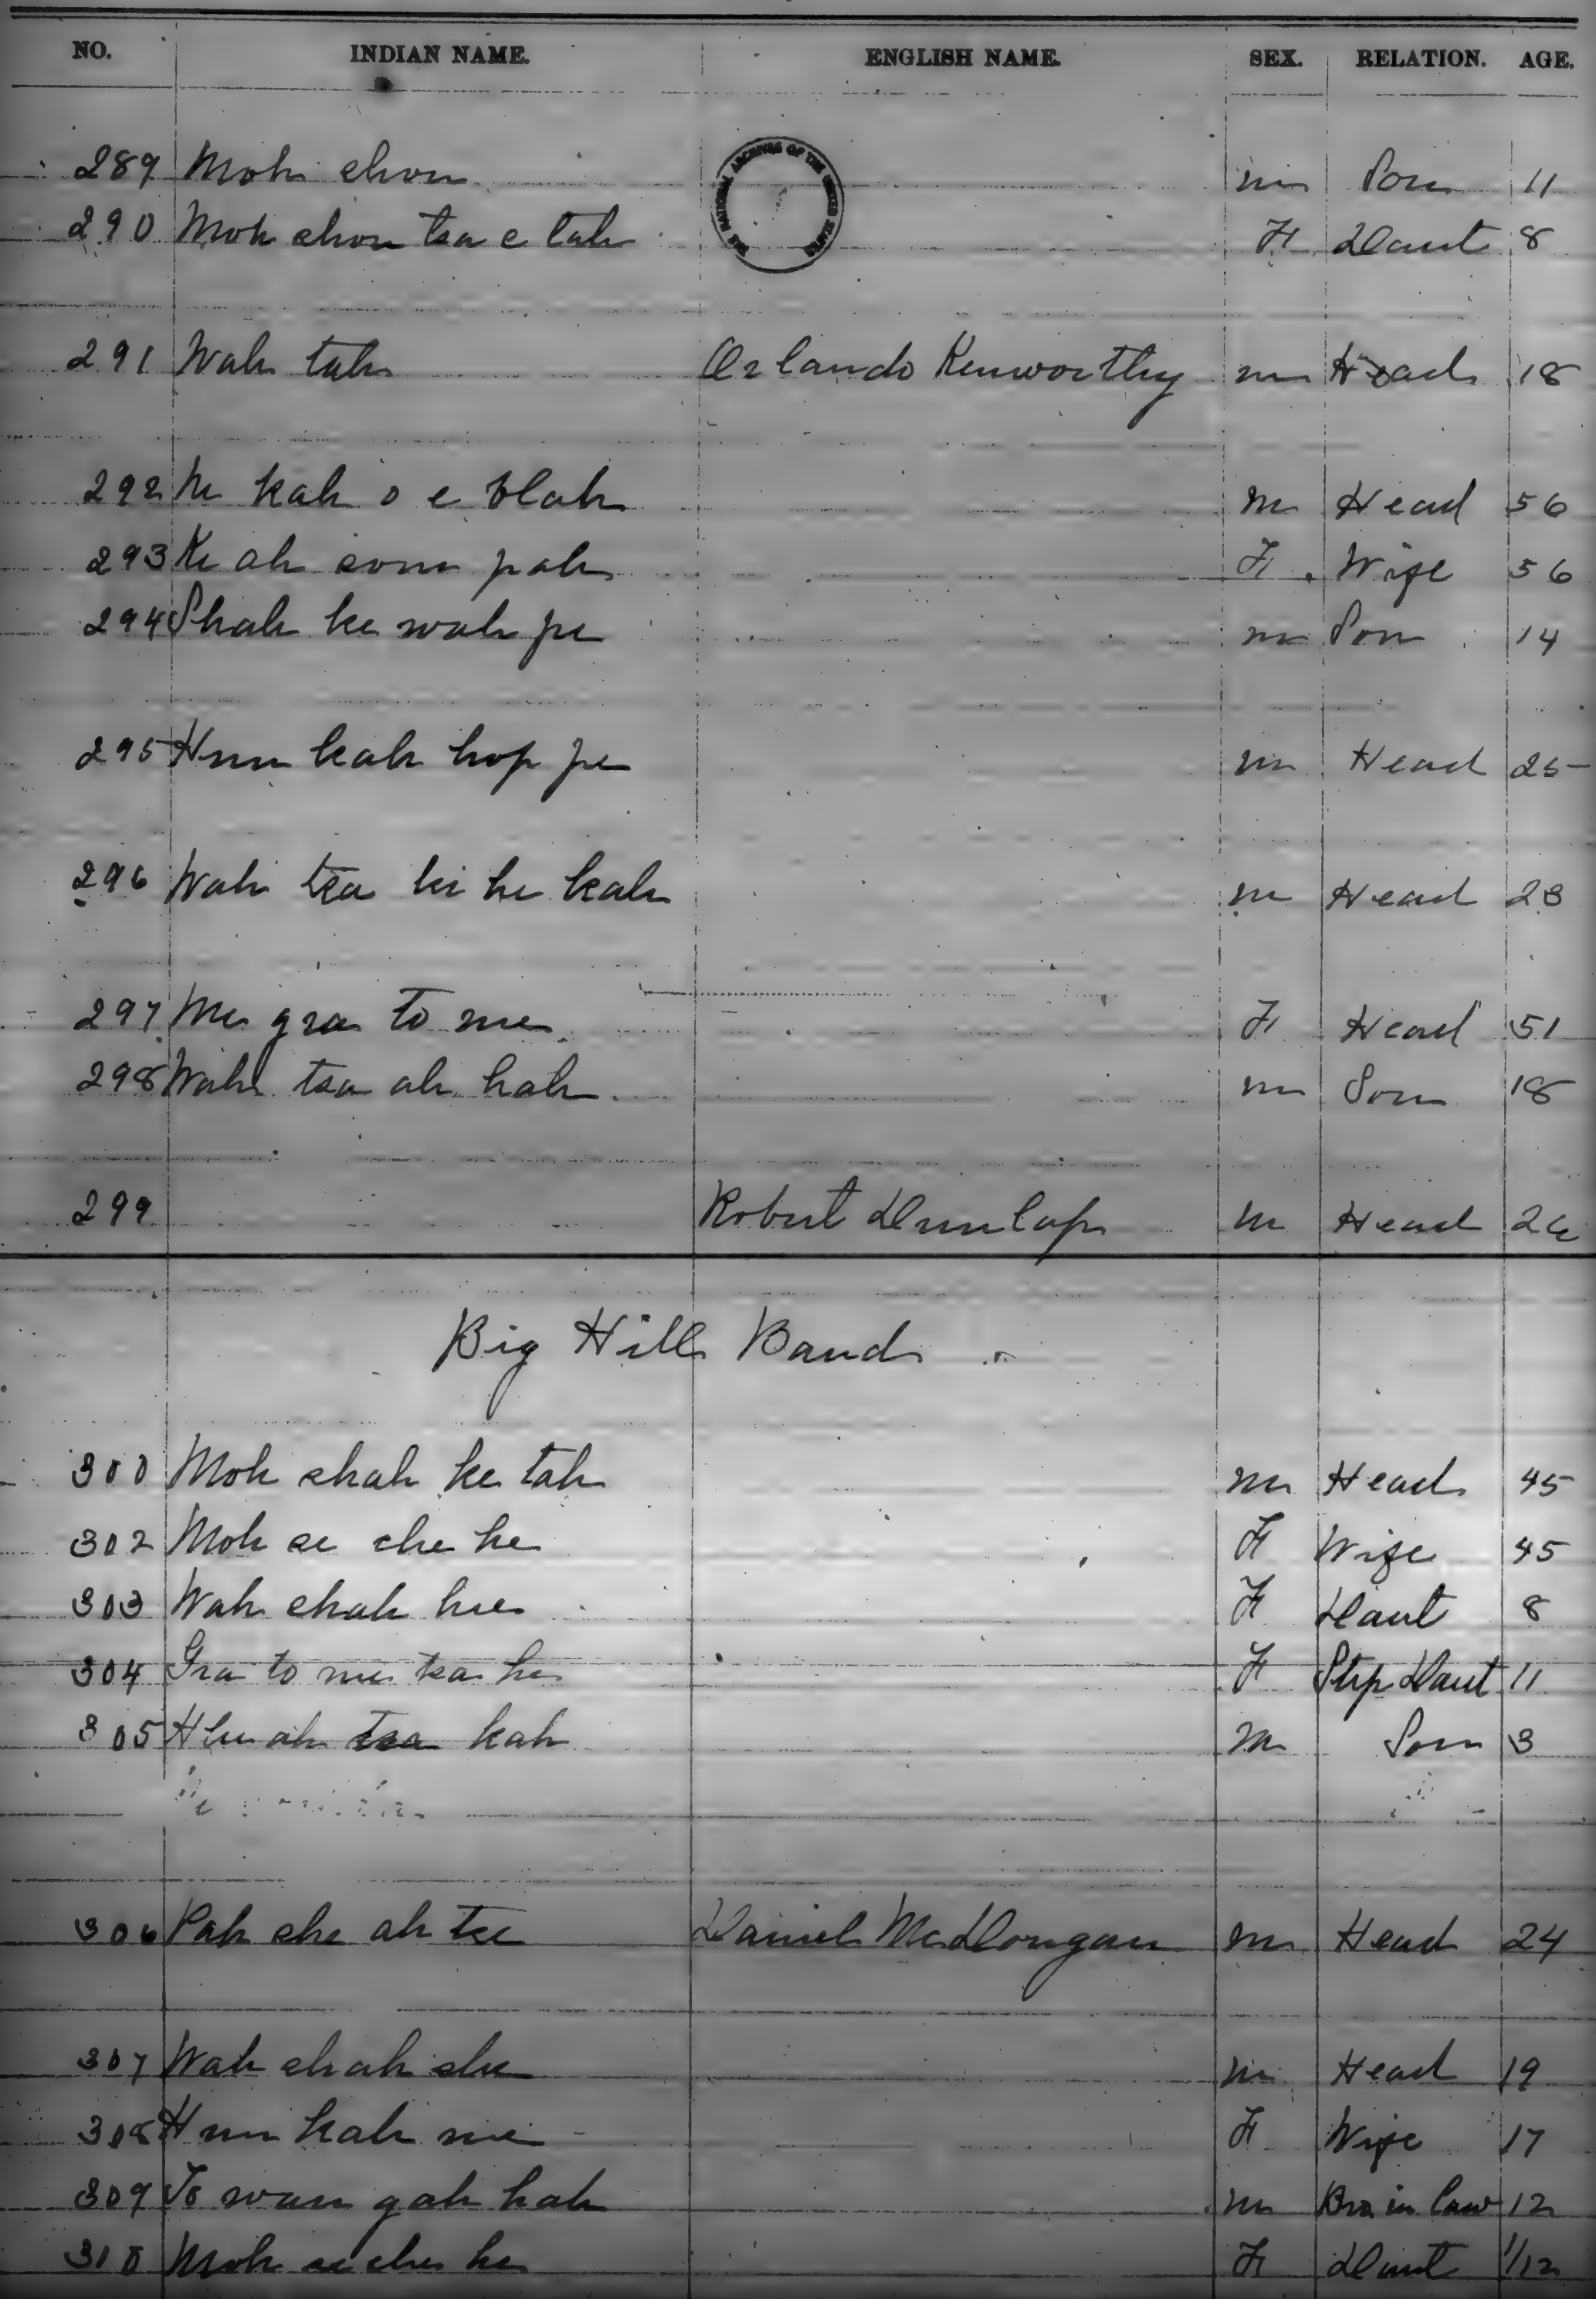 NO. INDIAN NAME. ENGLISH NAME. SEX. RELATION. AGE.
THE NATIONAL ARCHIVES OF THE UNITED STATES
289 Moh chon m Son 11
290 Moh chon tsa e tah F Daut 8
291 Wah tah Orlando Kenworthy m Head 18
292 Ne kah o e blah m Head 56
293 Ke ah som pah F Wife 56
294 Shah ke wah pe m Son 14
295 Hun kah hop pe m Head 25
296 Wah tsa ki he kah m Head 23
297 Me gra to me F Head 51
298 Wah tsa ah hah m Son 18
299 Robert Dunlap m Head 26
Big Hill Band
300 Moh shah ke tah m Head 45
302 Moh se che he F Wife 45
303 Wah shah hue F Daut 8
304 Gra to me tsa he F Step Daut 11
305 Hlu ah tsa kah m Son 3
306 Pah she ah tse Daniel McDougan m Head 24
307 Wah shah she m Head 19
308 Hun kah me F Wife 17
309 To wan gah hah m Bro in law 12
310 Moh se che he F Daut 1/12